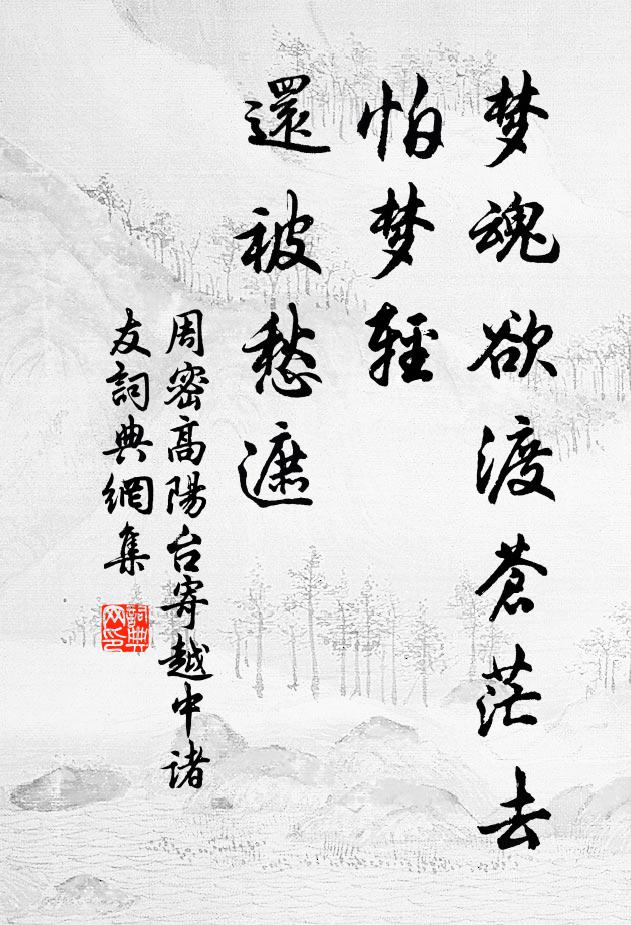 梦魂欲渡蒼茫去
怕梦輕
還被愁遮
周密高陽台寄越中诸
友詞典網集
詞典
网印